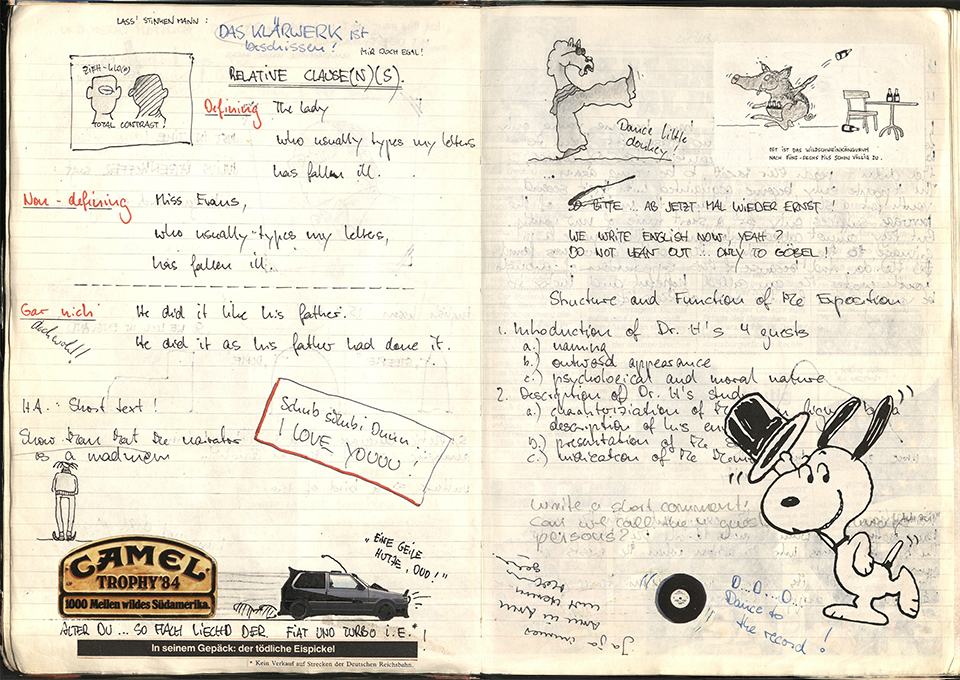 LASS' STINKEN MANN :
DAS KLÄRWERK ist
beschissen !
MIR DOCH EGAL !
RELATIVE CLAUSE(N)(S).
TOTAL CONTRAST !
Defining
The lady
who usually types my letters
has fallen ill.
Non-defining
Miss Evans,
who usually types my letters,
has fallen ill.
Gar nich
doch wohl!!
He did it like his father.
He did it as his father had done it.
H.A.: Short text !
Show that the narrator
is a madman
Schub schubi Duuu
I LOVE YOUUU !
CAMEL
TROPHY '84
1000 Meilen wildes Südamerika.
"EINE GEILE
HUTZE, DUD!"
ALTER DU ... SO FLACH LIECHD DER FIAT UNO TURBO I.E.* !
In seinem Gepäck: der tödliche Eispickel
* Kein Verkauf auf Strecken der Deutschen Reichsbahn.
Dance little
donkey !
OFT IST DAS WILDSCHWEINKÄNGURUH
NACH FÜNF-SECHS PILS SCHON VÖLLIG ZU.
SO BITTE !.. AB JETZT MAL WIEDER ERNST !
WE WRITE ENGLISH NOW, YEAH ?
DO NOT LEAN OUT ... ONLY TO GÖBEL !
Structure and Function of the Exposition
1. Introduction of Dr. H's 4 guests
a.) naming
b.) outword appearance
c.) psychological and moral nature
2. Description of Dr. H's study
a.) charcterization of
description of his
b.) presentation of the
c.) indication of the
Write a short comment!
Can we call the 4 guests
persons?
Ja ja immer
Arm in Arm
und
O...O...O...
Dance to
the record !